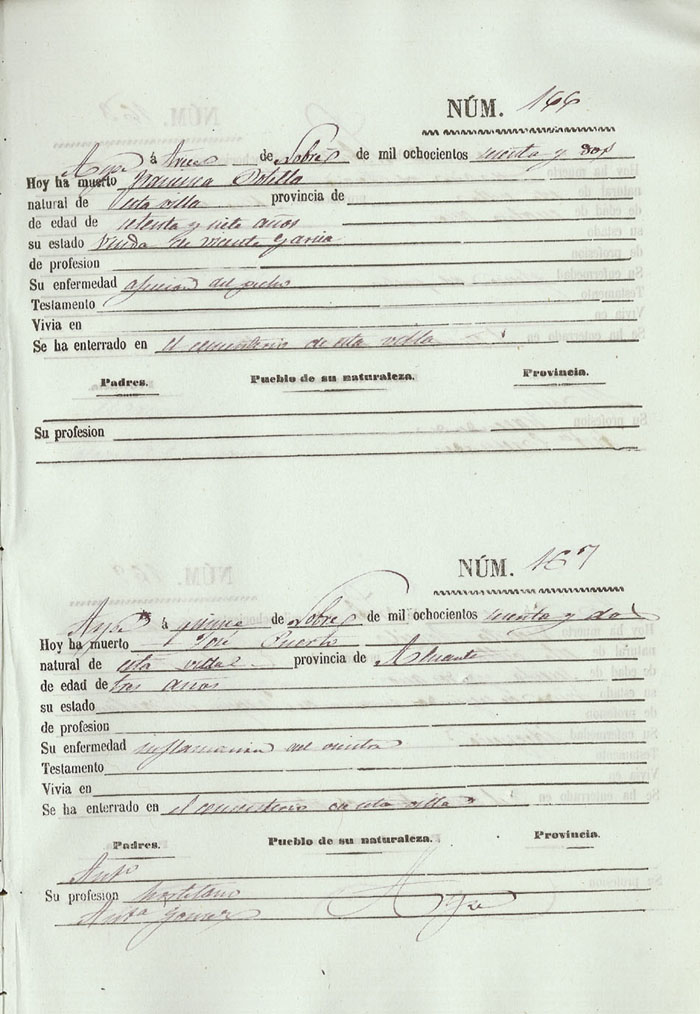 NÚM. 166
Aspe á trece de 8bre de mil ochocientos sesenta y dos
Hoy ha muerto Francisca Botella
natural de esta villa provincia de
de edad de setenta y siete años
su estado Viuda de Vicente Garcia
de profesion
Su enfermedad afeccion del pecho
Testamento
Vivia en
Se ha enterrado en el cementerio de esta villa
Padres. Pueblo de su naturaleza. Provincia.
Su profesion
NÚM. 167
Aspe á quince de 8bre de mil ochocientos sesenta y dos
Hoy ha muerto José Puerto
natural de esta villa provincia de Alicante
de edad de tres años
su estado
de profesion
Su enfermedad inflamacion del vientre
Testamento
Vivia en
Se ha enterrado en el cementerio de esta villa
Padres. Pueblo de su naturaleza. Provincia.
Antº
Su profesion hortelano
Antª Gomez